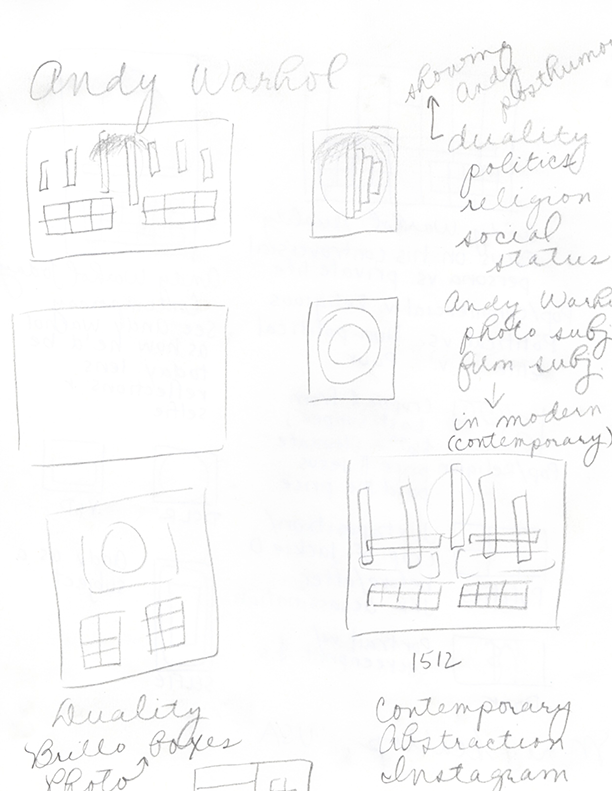 Andy Warhol
showing
Andy
duality
politics
religion
social
status
Andy
photo subj
film subj.
in modern
(contemporary)
1512
Duality
Brillo boxes
Photo
Contemporary
Abstraction
Instagram